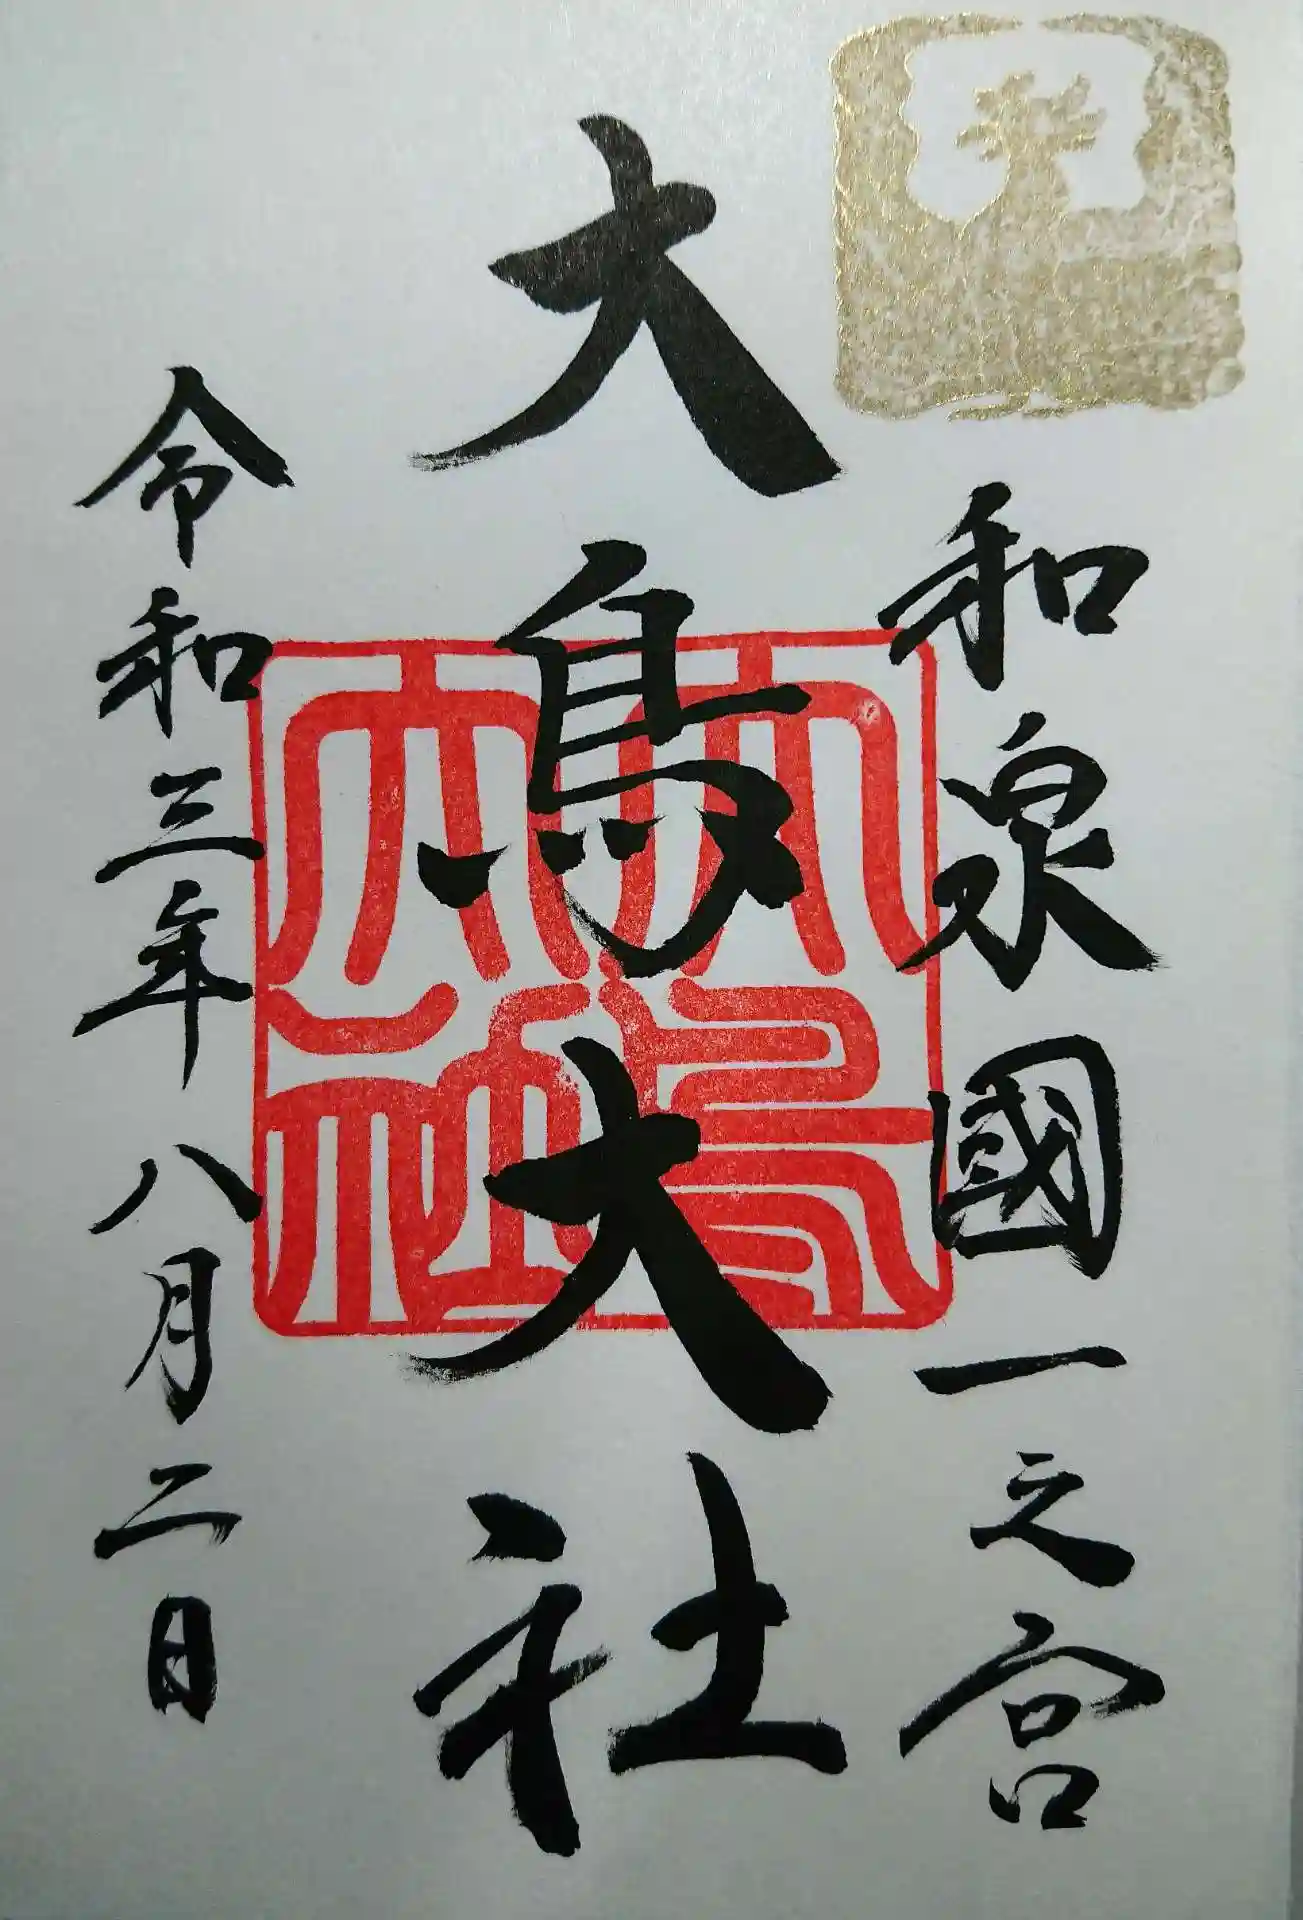 和泉國一之宮
大鳥大社
大鳥大社
令和三年八月二日